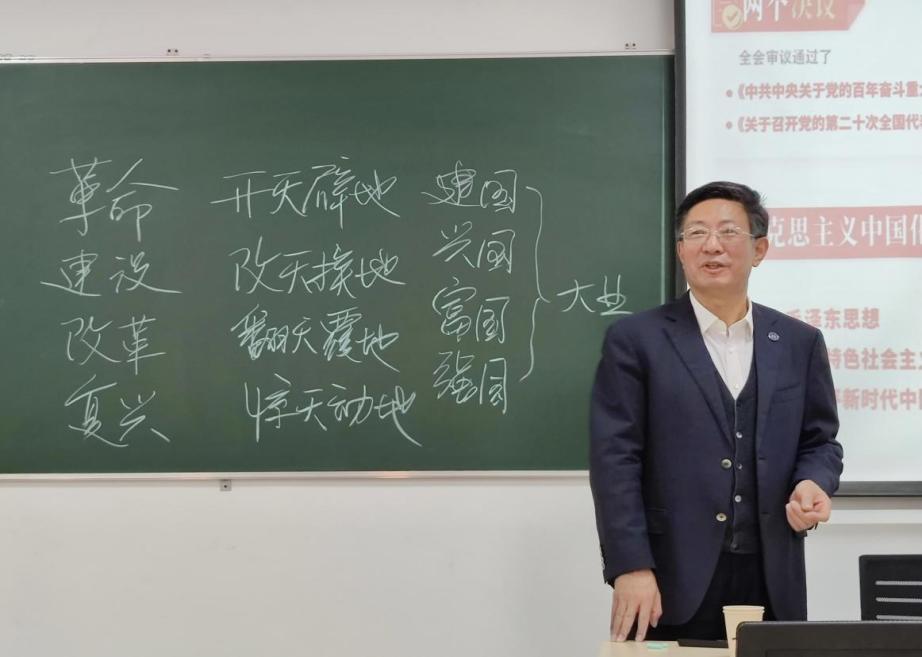 革命 开天辟地 建国
建设 改天换地 兴国
改革 翻天覆地 富国
复兴 惊天动地 强国
大业
两个决议
全会审议通过了
•《中共中央关于党的百年奋斗重
•《关于召开党的第二十次全国代
克思主义中国化
毛泽东思想
特色社会主
新时代中